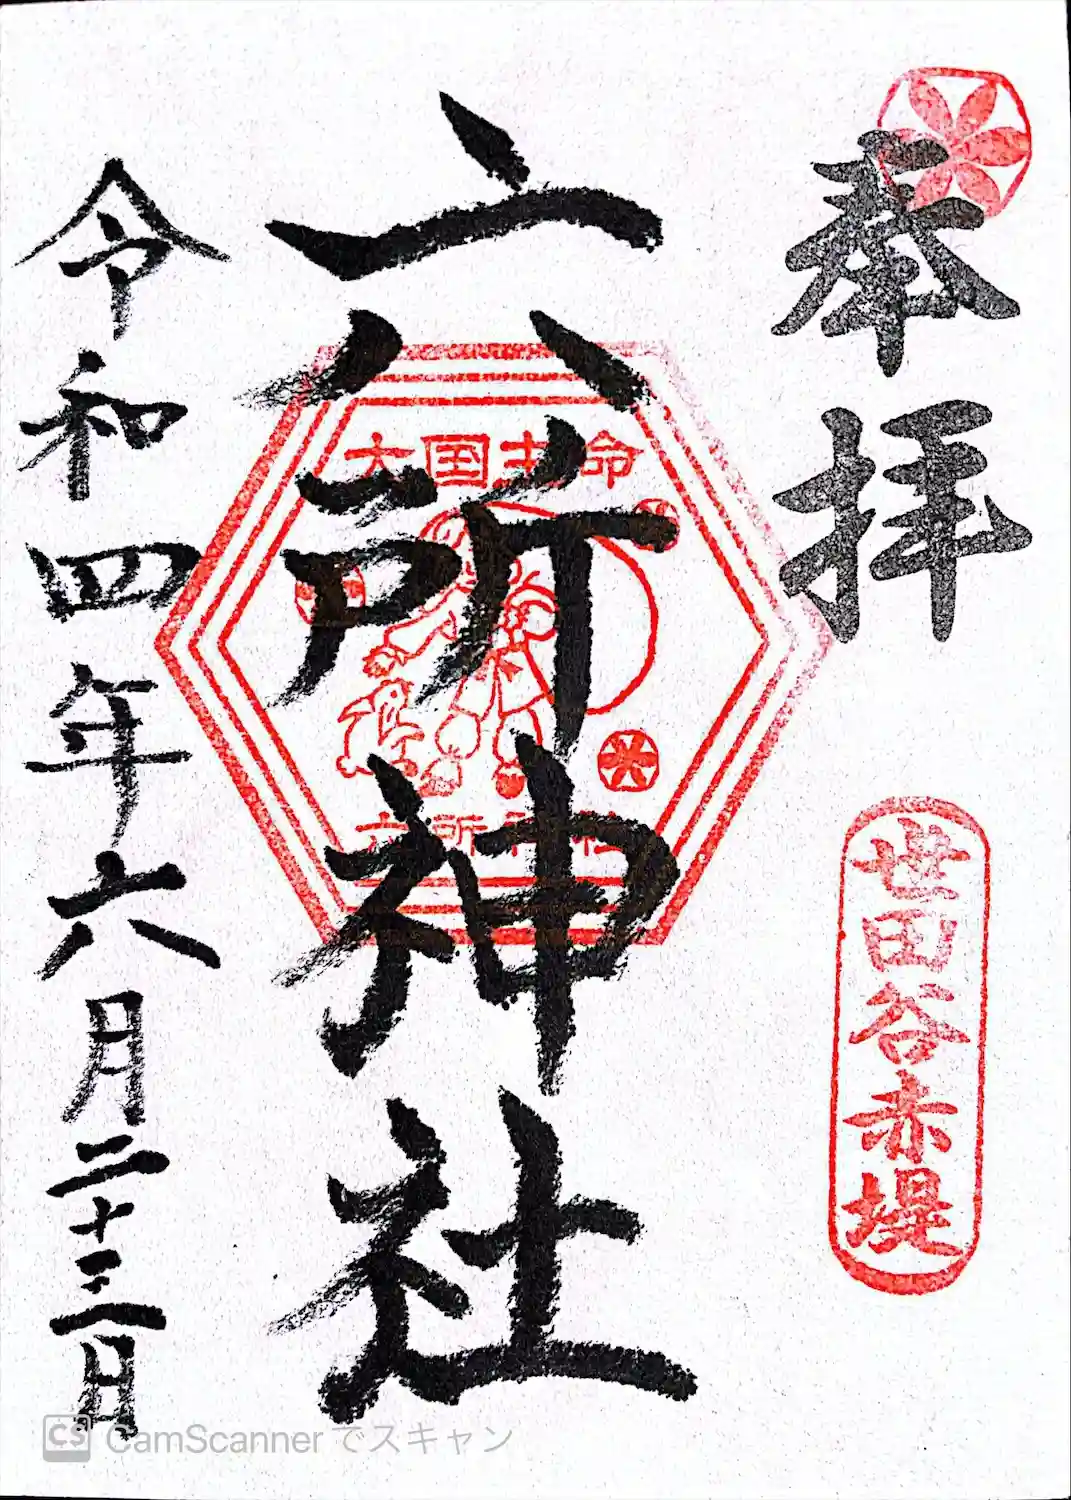 奉拝
世田谷赤堤
六所神社
大国主命
六所神社
令和四年六月二十三日
CamScanner でスキャン